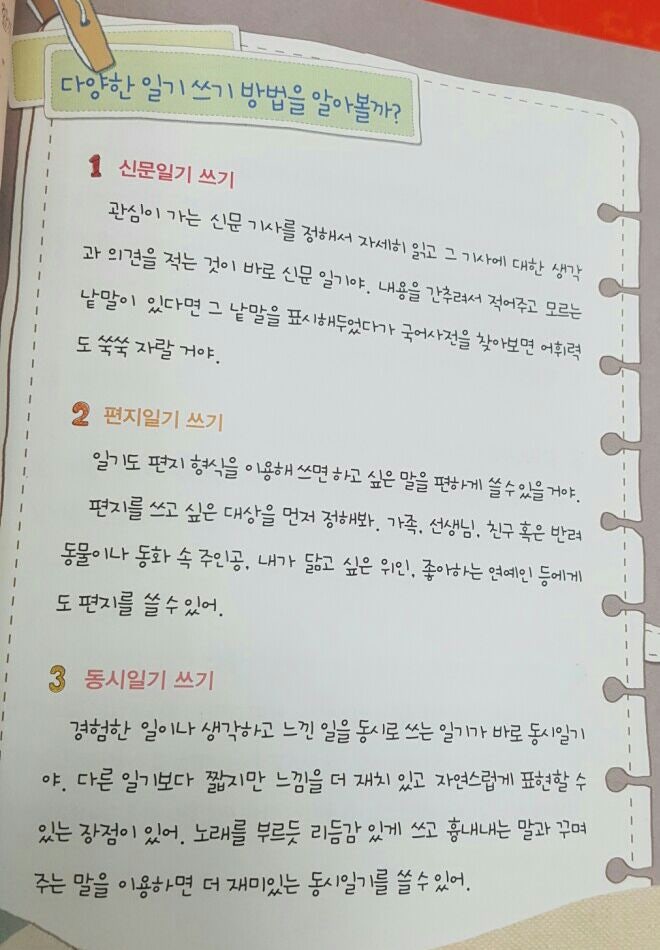 다양한 일기 쓰기 방법을 알아볼까?
1 신문일기 쓰기
관심이 가는 신문 기사를 정해서 자세히 읽고 그 기사에 대한 생각
과 의견을 적는 것이 바로 신문 일기야. 내용을 간추려서 적어주고 모르는
낱말이 있다면 그 낱말을 표시해두었다가 국어사전을 찾아보면 어휘력
도 쑥쑥 자랄 거야.
2 편지일기 쓰기
일기도 편지 형식을 이용해 쓰면 하고 싶은 말을 편하게 쓸 수 있을 거야.
편지를 쓰고 싶은 대상을 먼저 정해봐. 가족, 선생님, 친구 혹은 반려
동물이나 동화 속 주인공, 내가 닮고 싶은 위인, 좋아하는 연예인 등에게
도 편지를 쓸 수 있어.
3 동시일기 쓰기
경험한 일이나 생각하고 느낀 일을 동시로 쓰는 일기가 바로 동시일기
야. 다른 일기보다 짧지만 느낌을 더 재치 있고 자연스럽게 표현할 수
있는 장점이 있어. 노래를 부르듯 리듬감 있게 쓰고 흉내내는 말과 꾸며
주는 말을 이용하면 더 재미있는 동시일기를 쓸 수 있어.